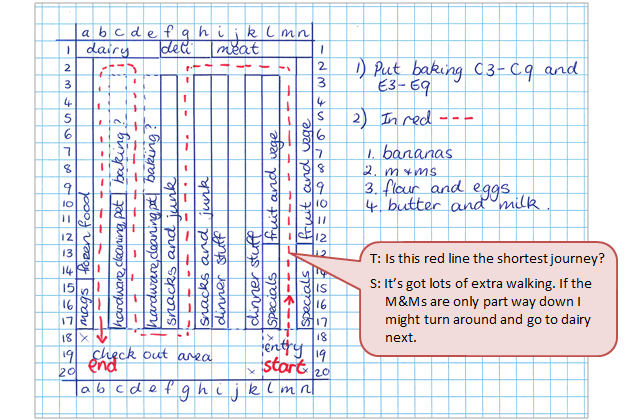 a b c d e f g h i j k l m n
1 dairy deli meat 1
2 2
3 3
4 4
5 5
6 6
7 7
8 8
9 9
10 10
11 11
12 12
13 13
14 14
15 15
16 16
17 17
18 x x 18
19 check out area entry 19
20 end start x x 20
a b c d e f g h i j k l m n
mags frozen food
hardware, cleaning, pet baking?
hardware, cleaning, pet baking?
snacks and junk
snacks and junk
dinner stuff
dinner stuff
specials fruit and vege
specials fruit and vege
1) Put baking C3-C9 and
E3-E9
2) In red ---
1. bananas
2. m+ms
3. flour and eggs
4. butter and milk.
T: Is this red line the shortest journey?
S: It's got lots of extra walking. If the
M&Ms are only part way down I
might turn around and go to dairy
next.